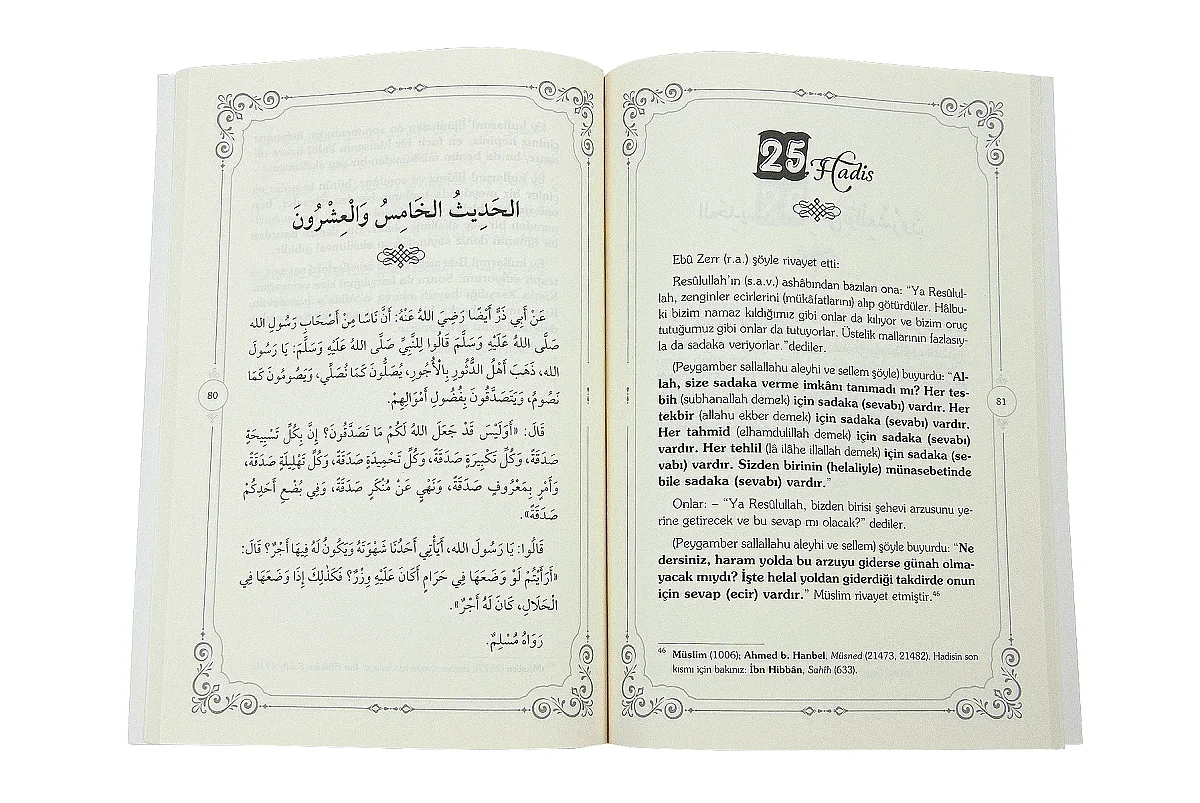 الحَدِيثُ الخَامِسُ وَالْعِشْرُونَ
عَنْ أَبِي ذَرٍّ أَيْضًا رَضِيَ اللهُ عَنْهُ: أَنَّ نَاسًا مِنْ أَصْحَابِ رَسُولِ الله
صَلَّى اللهُ عَلَيْهِ وَسَلَّمَ قَالُوا لِلنَّبِيِّ صَلَّى اللهُ عَلَيْهِ وَسَلَّمَ: يَا رَسُولَ
الله، ذَهَبَ أَهْلُ الدُّثُورِ بِالْأُجُورِ، يُصَلُّونَ كَمَا نُصَلِّي، وَيَصُومُونَ كَمَا
نَصُومُ، وَيَتَصَدَّقُونَ بِفُضُولِ أَمْوَالِهِمْ.
قَالَ: «أَوَلَيْسَ قَدْ جَعَلَ اللهُ لَكُمْ مَا تَصَدَّقُونَ؟ إِنَّ بِكُلِّ تَسْبِيحَةٍ
صَدَقَةً، وَكُلِّ تَكْبِيرَةٍ صَدَقَةً، وَكُلِّ تَحْمِيدَةٍ صَدَقَةً، وَكُلِّ تَهْلِيلَةٍ صَدَقَةً،
وَأَمْرٍ بِمَعْرُوفٍ صَدَقَةً، وَنَهْيٍ عَنْ مُنْكَرٍ صَدَقَةً، وَفِي بُضْعِ أَحَدِكُمْ
صَدَقَةً».
قَالُوا: يَا رَسُولَ الله، أَيَأْتِي أَحَدُنَا شَهْوَتَهُ وَيَكُونُ لَهُ فِيهَا أَجْرٌ؟ قَالَ:
«أَرَأَيْتُمْ لَوْ وَضَعَهَا فِي حَرَامٍ أَكَانَ عَلَيْهِ وِزْرٌ؟ فَكَذٰلِكَ إِذَا وَضَعَهَا فِي
الْحَلَالِ، كَانَ لَهُ أَجْرٌ».
رَوَاهُ مُسْلِمٌ.
80
25 Hadis
Ebû Zerr (r.a.) şöyle rivayet etti:
Resûlullah'ın (s.a.v.) ashâbından bazıları ona: “Ya Resûlul-
lah, zenginler ecirlerini (mükâfatlarını) alıp götürdüler. Hâlbu-
ki bizim namaz kıldığımız gibi onlar da kılıyor ve bizim oruç
tutuğumuz gibi onlar da tutuyorlar. Üstelik mallarının fazlasıy-
la da sadaka veriyorlar.”dediler.
(Peygamber sallallahu aleyhi ve sellem şöyle) buyurdu: “Al-
lah, size sadaka verme imkânı tanımadı mı? Her tes-
bih (subhanallah demek) için sadaka (sevabı) vardır. Her
tekbir (allahu ekber demek) için sadaka (sevabı) vardır.
Her tahmid (elhamdulillah demek) için sadaka (sevabı)
vardır. Her tehlil (lâ ilâhe illallah demek) için sadaka (se-
vabı) vardır. Sizden birinin (helaliyle) münasebetinde
bile sadaka (sevabı) vardır.”
Onlar: – “Ya Resûlullah, bizden birisi şehevi arzusunu ye-
rine getirecek ve bu sevap mı olacak?” dediler.
(Peygamber sallallahu aleyhi ve sellem) şöyle buyurdu: “Ne
dersiniz, haram yolda bu arzuyu giderse günah olma-
yacak mıydı? İşte helal yoldan giderdiği takdirde onun
için sevap (ecir) vardır.” Müslim rivayet etmiştir.46
46 Müslim (1006); Ahmed b. Hanbel, Müsned (21473, 21482). Hadisin son
kısmı için bakınız: İbn Hibbân, Sahîh (633).
81